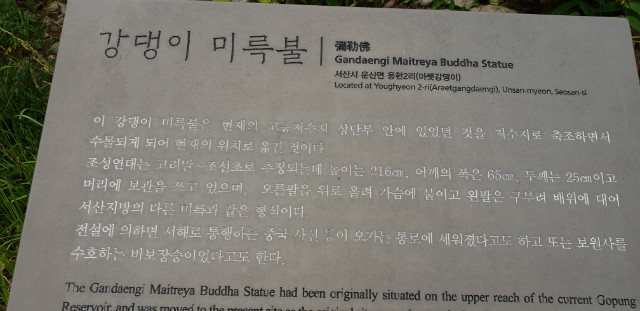 강댕이 미륵불
彌勒佛
Gandaengi Maitreya Buddha Statue
서산시 운산면 용현2리(아랫강댕이)
Located at Youghyeon 2-ri(Araetgangdaengi), Unsan-myeon, Seosan-si
이 강댕이 미륵불은 현재의 고풍저수지 상단부 안에 있었던 것을 저수지로 축조하면서
수몰되게 되어 현재의 위치로 옮긴 것이다.
조성연대는 고려말~조선초로 추정되는데 높이는 216㎝, 어깨의 폭은 65㎝, 두께는 25㎝이고
머리에 보관을 쓰고 있으며, 오른팔을 위로 올려 가슴에 붙이고 왼팔은 구부려 배위에 대어
서산지방의 다른 미륵과 같은 형식이다.
전설에 의하면 서해로 통행하는 중국 사신들이 오가는 통로에 세워졌다고도 하고 또는 보원사를
수호하는 비보장승이었다고도 한다.
The Gandaengi Maitreya Buddha Statue had been originally situated on the upper reach of the current Gopung
Reservoir, and was moved to the present site as the original